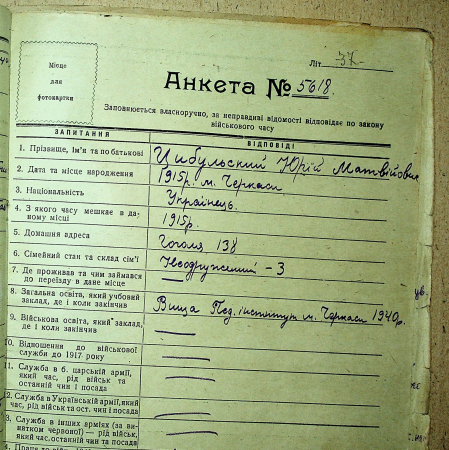 Літ. -37-
Місце
для
фотокартки
Анкета № 5618.
Заповнюється власноручно, за неправдиві відомості відповідає по закону
військового часу
ЗАПИТАННЯ ВІДПОВІДІ
1. Прізвище, Ім'я та по батькові Цибульский Юрій Матвійович
2. Дата та місце народження 1915р. м. Черкаси
3. Національність Українець.
4. З якого часу мешкає в да-
ному місці 1915р.
5. Домашня адреса Гоголя 138
6. Сімейний стан та склад сім'ї Неодружений - 3
7. Де проживав та чим займався
до переїзду в дане місце —
8. Загальна освіта, який учбовий
заклад, де і коли закінчив Вища Пед. інститут м. Черкаси 1940р.
9. Військова освіта, який заклад,
де і коли закінчив —
10. Відношення до військової
служби до 1917 року —
11. Служба в б. царській армії,
який час, рід військ та
останній чин і посада —
2. Служба в Українській армії, який
час, рід військ та ост. чин і посада —
3. Служба в інших арміях (за ви-
нятком червоної) — рід військ,
який час, останній чин та посада —